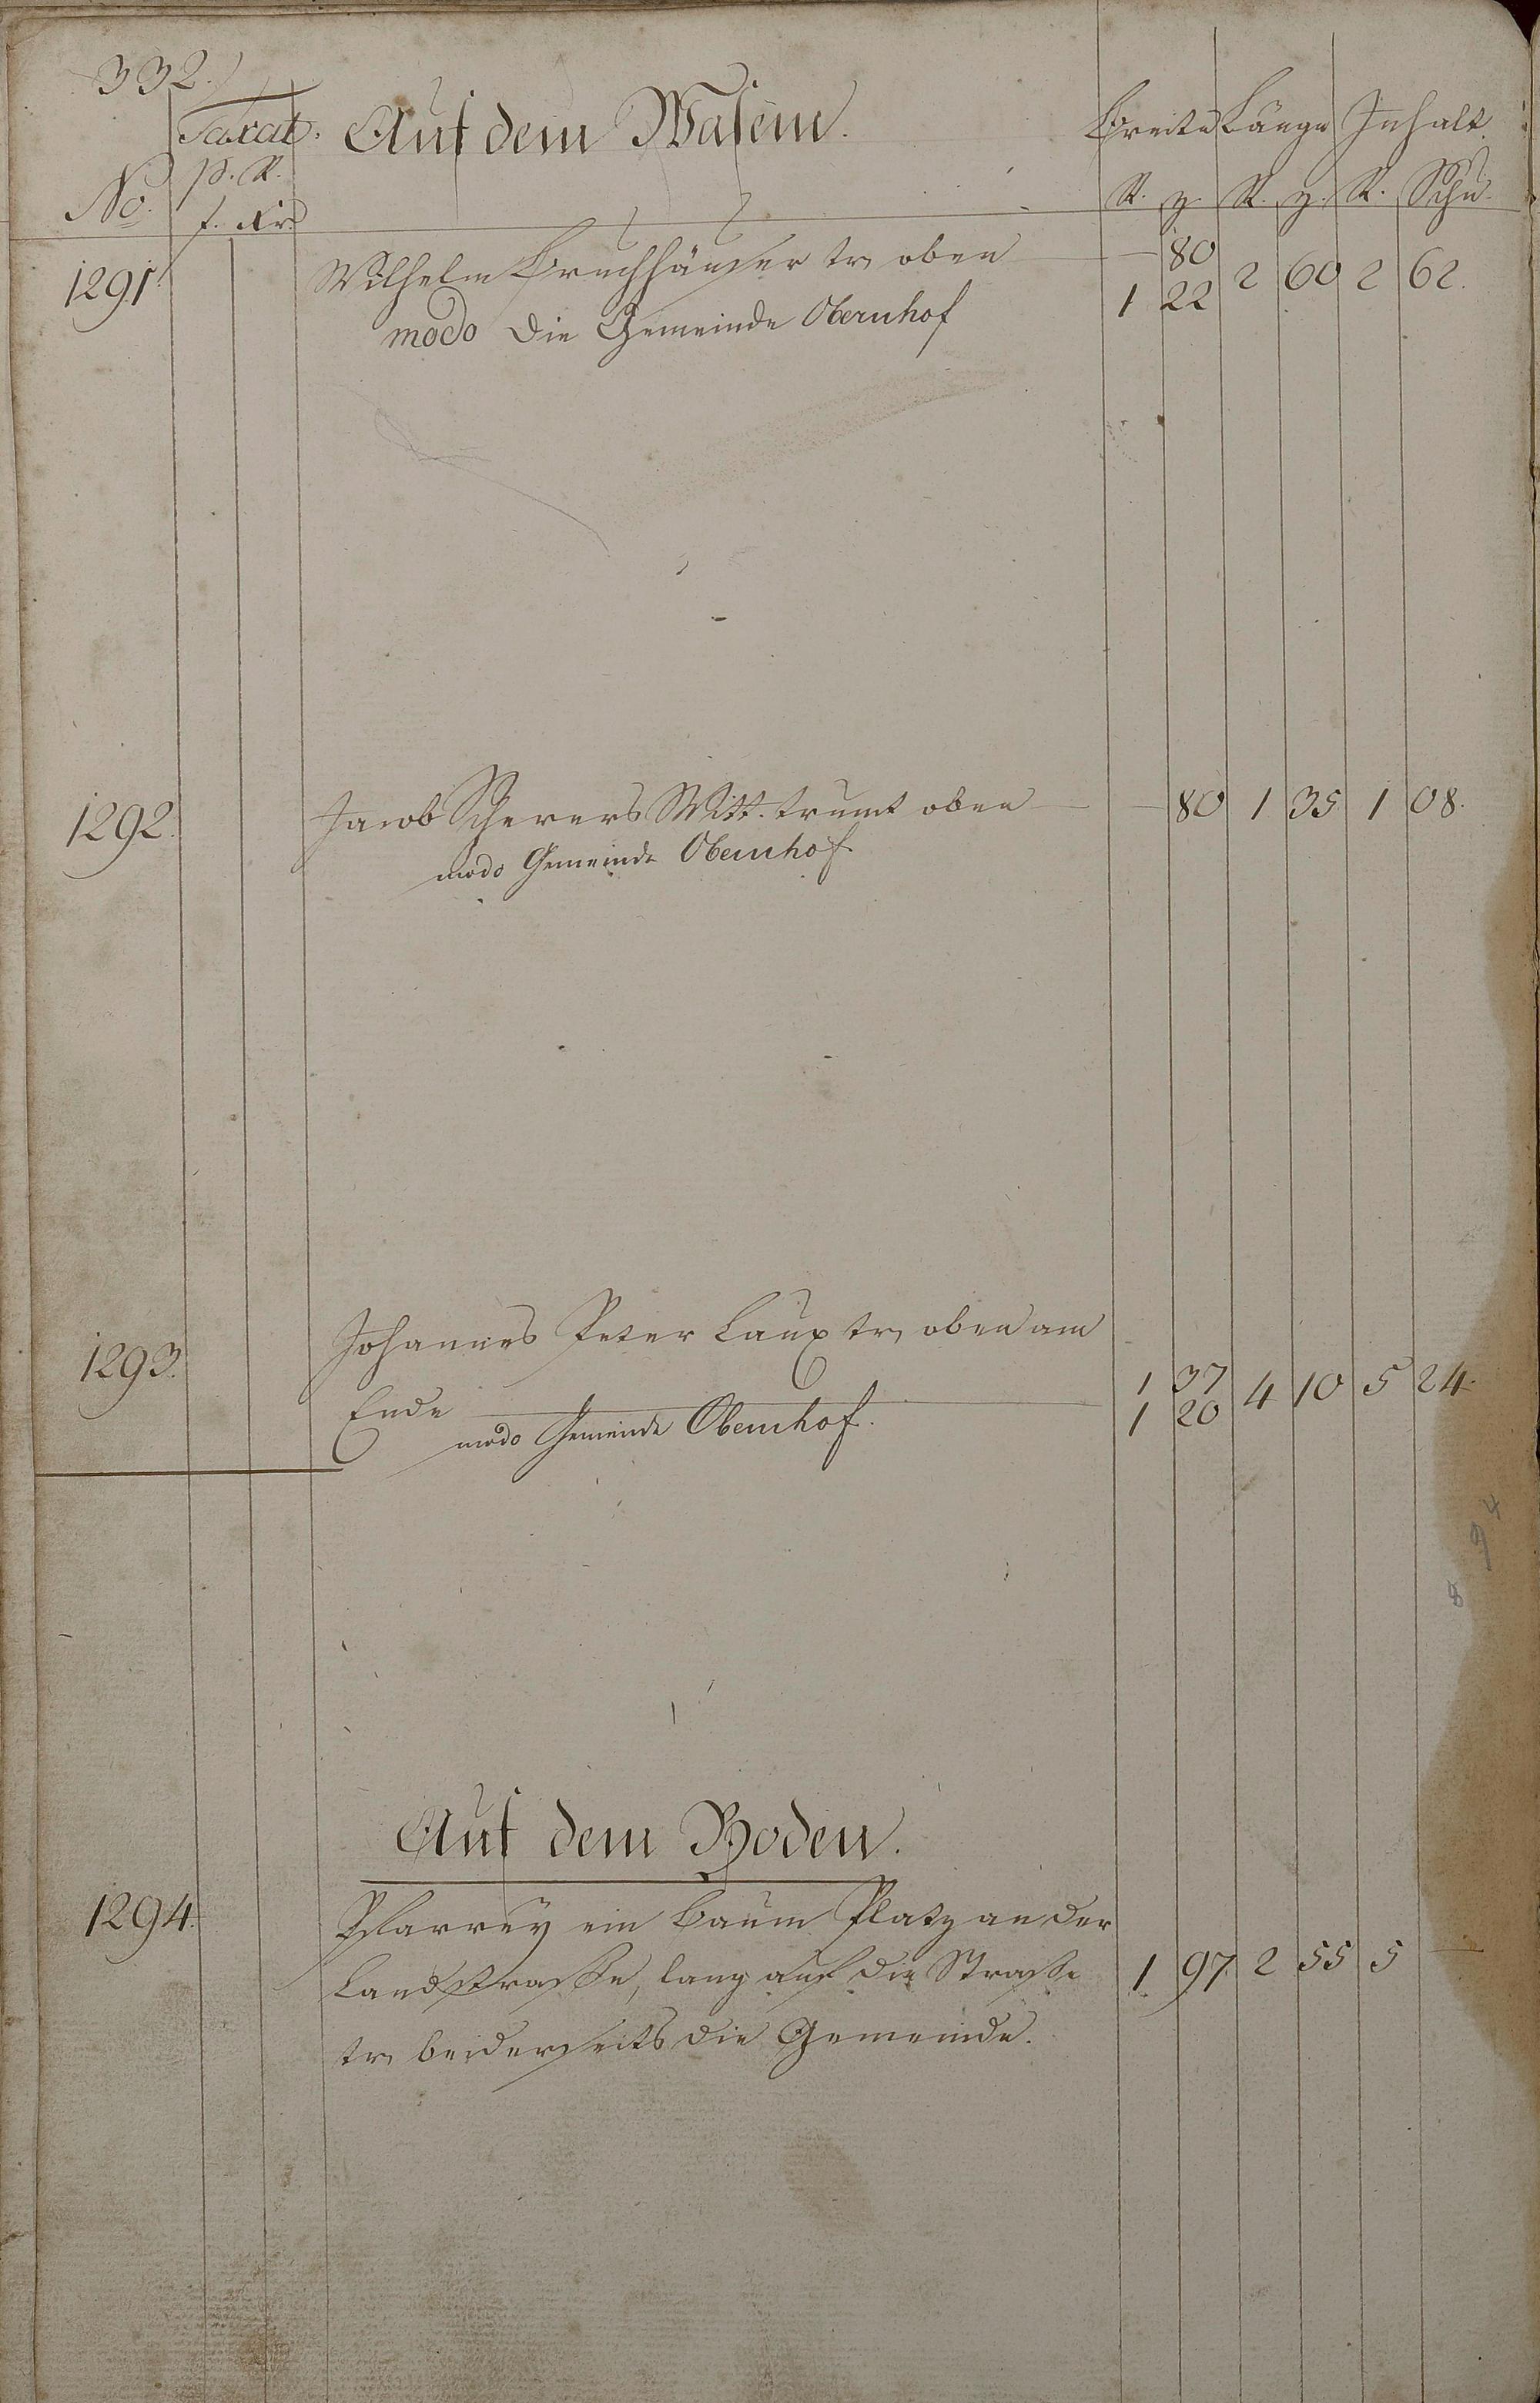 332.
Taxat. Auf dem Wasem. Breite Länge Inhalt
No. p. R. R. z. R. z. R. Schu
f. Kr.
1291. Wilhelm Bruchhäuser tr. oben — 80 2 60 2 62.
modo die Gemeinde Obernhof 1 22
1292. Jacob Scherers Witt. trumt oben — 80 1 35 1 08.
modo Gemeinde Obernhof.
1293. Johannes Peter Laux tr. oben am 1 37 4 10 5 24.
Ende 1 20
modo Gemeinde Obernhof.
Auf dem Boden.
1294. Pfarrey ein Baum Platz an der
Landstrasse, lang auf die Strasse 1 97 2 55 5 —
tr. beiderseits die Gemeinde.